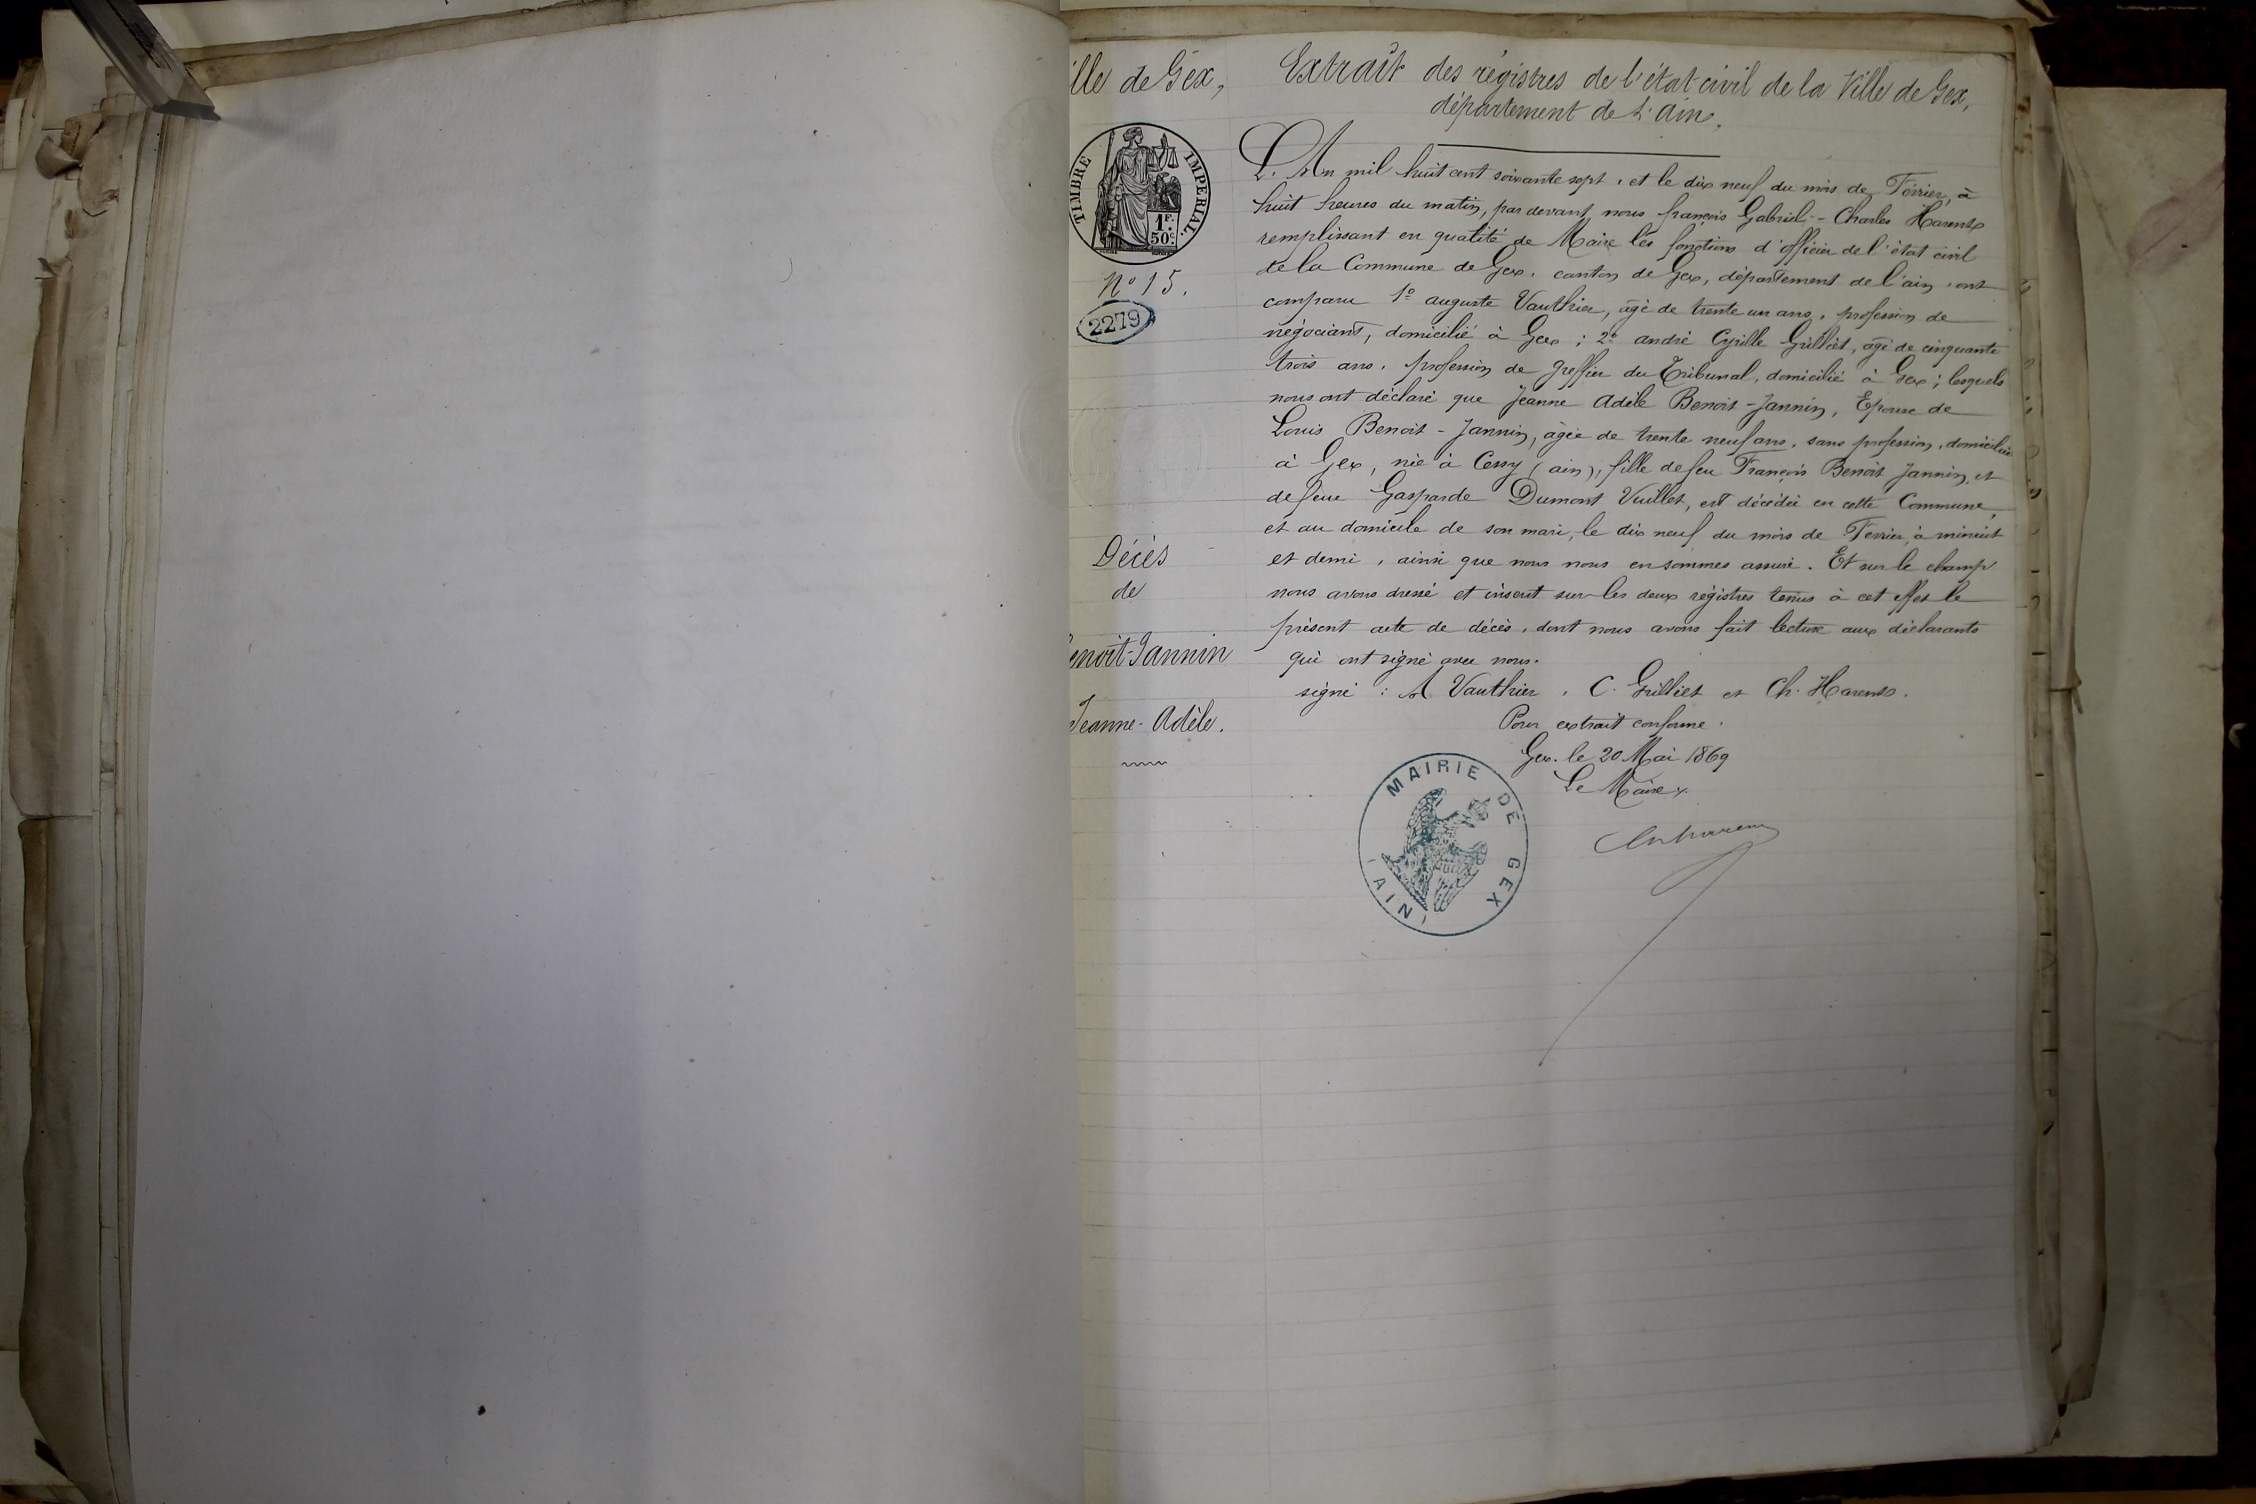 ille de Gex,
Extrait des régistres de l'état civil de la Ville de Gex,
département de l'ain.
TIMBRE IMPERIAL.
1F.
50c.
N° 15.
2279
L'An mil huit cent soixante sept, et le dix neuf du mois de Février, à
huit heures du matin, par devant nous françois Gabriel-Charles Harent
remplissant en qualité de Maire les fonctions d'officier de l'état civil
de la Commune de Gex, canton de Gex, département de l'ain, ont
comparu 1° auguste Vauthier, âgé de trente un ans, profession de
négociant, domicilié à Gex; 2° andré Cyrille Grilliet, âgé de cinquante
trois ans, profession de greffier du Tribunal, domicilié à Gex; lesquels
nous ont déclaré que Jeanne Adèle Benoit-Jannin, Epouse de
Louis Benoit-Jannin, âgée de trente neuf ans, sans profession, domiciliée
à Gex, née à Cessy (ain), fille de feu François Benoit Jannin, et
de feue Gasparde Dumont Vuillet, est décédée en cette Commune,
et au domicile de son mari, le dix neuf du mois de Fevrier, à minuit
et demi, ainsi que nous nous en sommes assuré. Et sur le champ
nous avons dressé et inscrit sur les deux régistres tenus à cet effet le
présent acte de décès, dont nous avons fait lecture aux déclarants
qui ont signé avec nous.
signé : A Vauthier, C. Grilliet et Ch. Harent.
Décès
de
enoit-Jannin
Jeanne-Adèle.
Pour extrait conforme.
Gex. le 20 Mai 1869
Le Maire
MAIRIE DE GEX
(AIN)